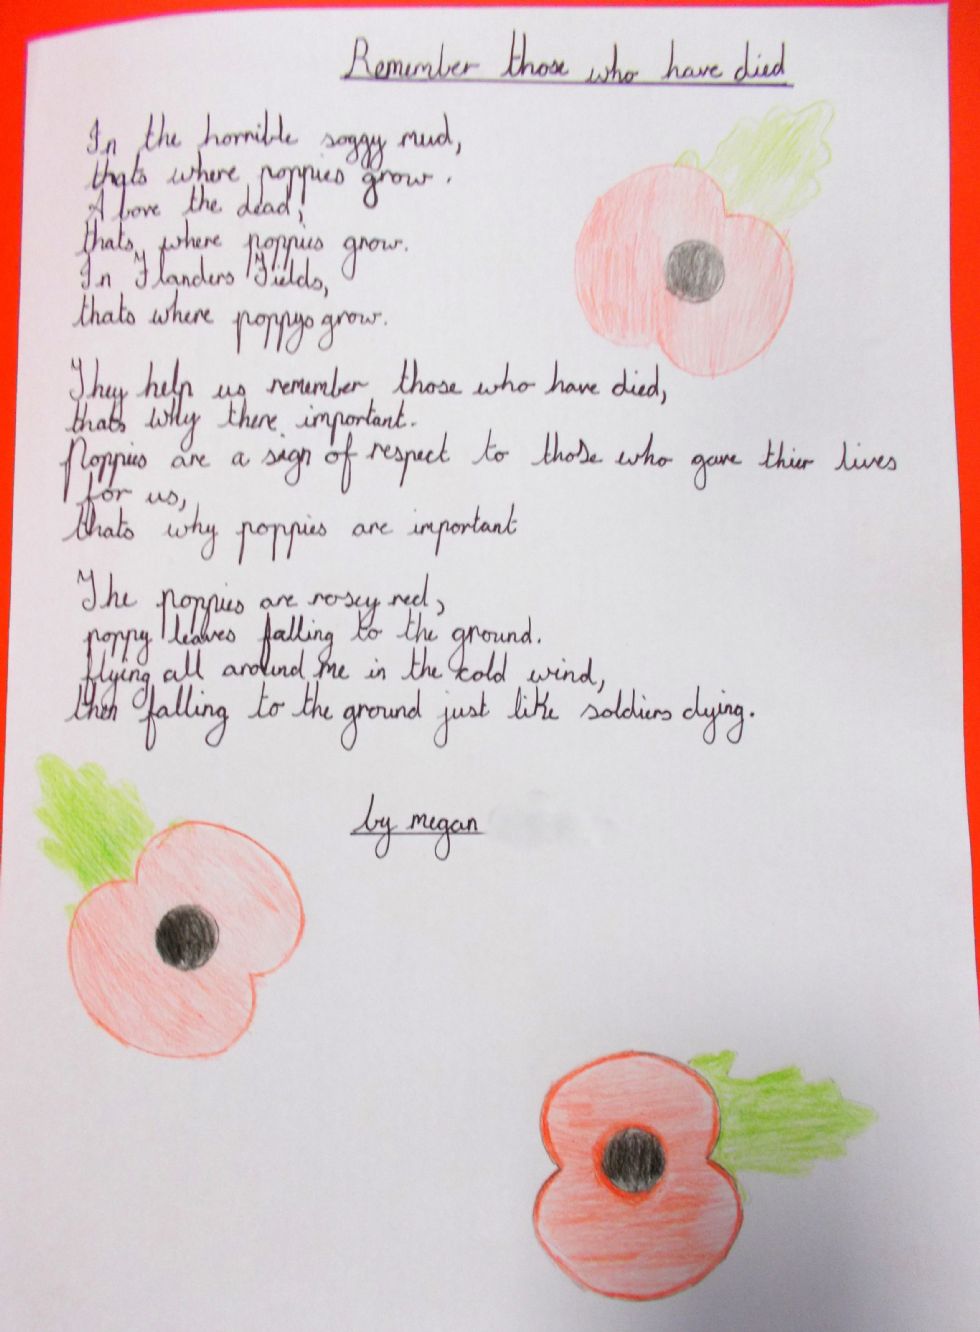 Remember those who have died
In the horrible soggy mud,
thats where poppies grow.
Above the dead,
thats where poppies grow.
In Flanders Fields,
thats where poppys grow.
They help us remember those who have died,
thats why there important.
Poppies are a sign of respect to those who gave thier lives
for us,
thats why poppies are important
The poppies are rosey red,
poppy leaves falling to the ground.
flying all around me in the cold wind,
then falling to the ground just like soldiers dying.
by megan